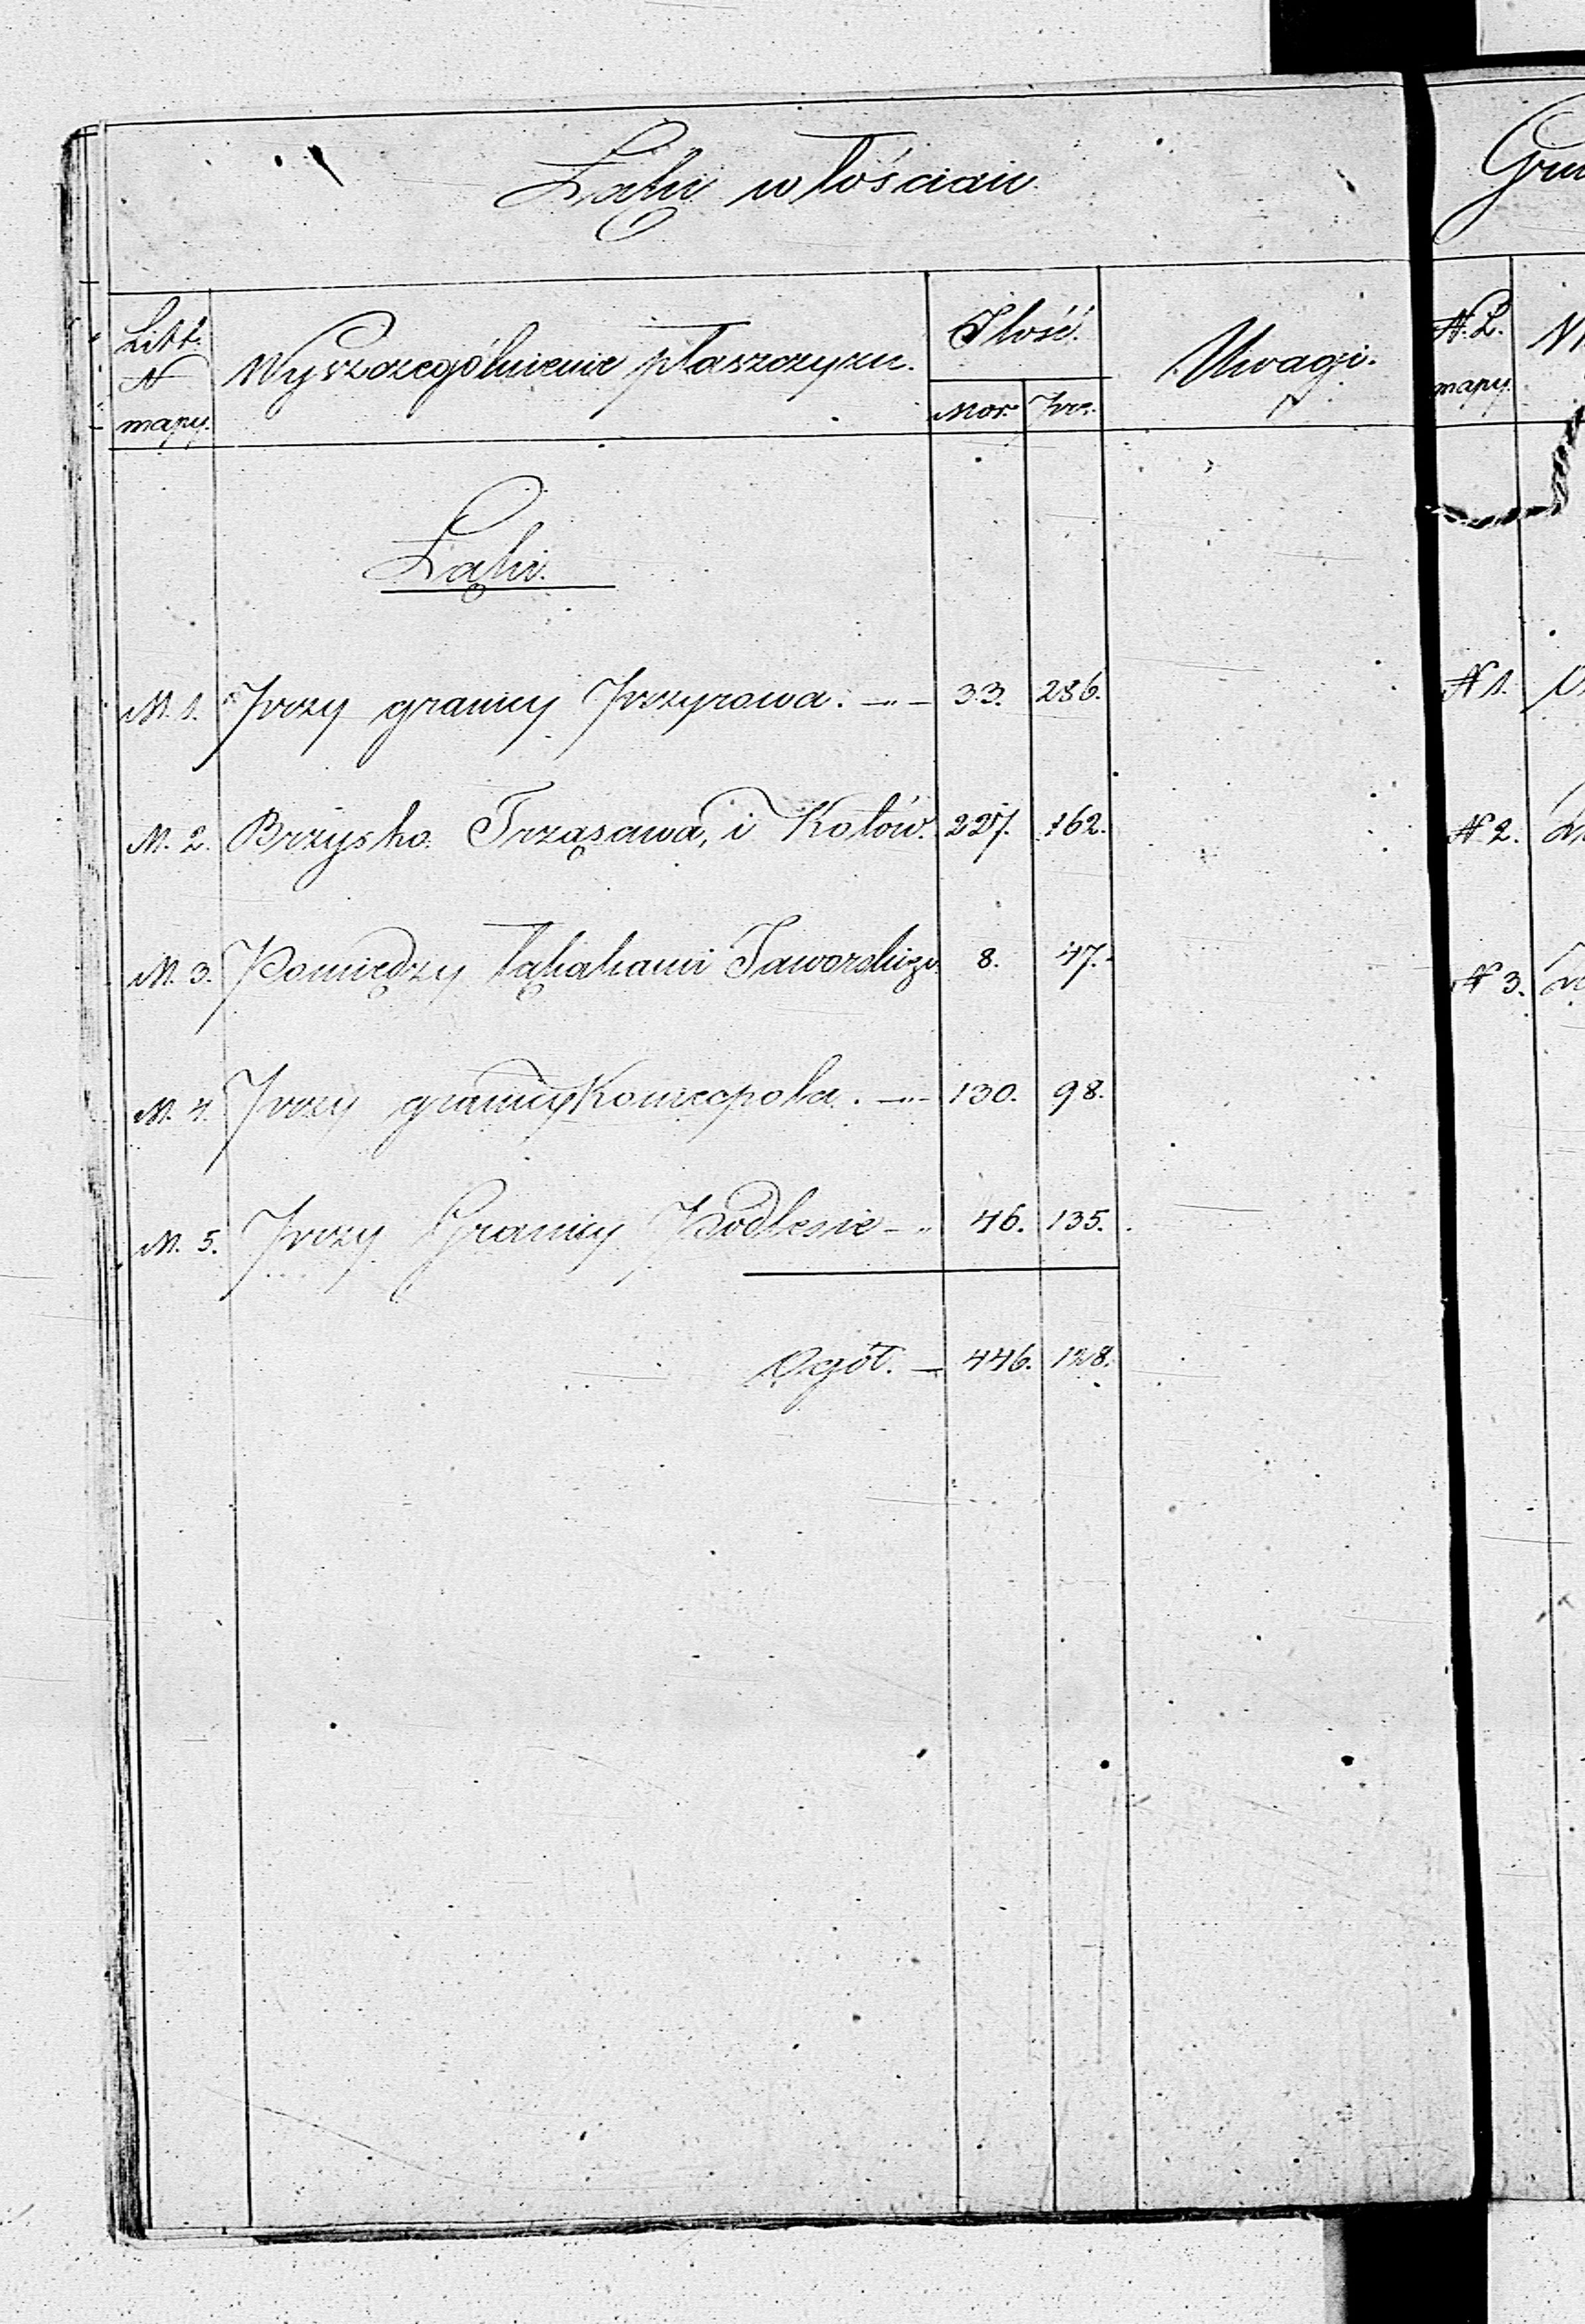 Łąki włościan
Litt.
N
mapy.
Wyszczególnienie płaszczyzn.
Ilość.
Mor. Prę.
Uwagi.
Łąki.
M. 1. Przy granicy Przyrowa. 33. 286.
M. 2. Brzysko Trząsawa, i Kołów. 227. 162.
M. 3. Pomiędzy Łąkakami Jaworskiego 8. 47.
M. 4. Przy granicy Koniecpola. 130. 98.
M. 5. Przy Granicy Podlesie 46. 135.
Ogół. 446. 128.
N. L.
mapy.
N 1.
N 2.
N 3.